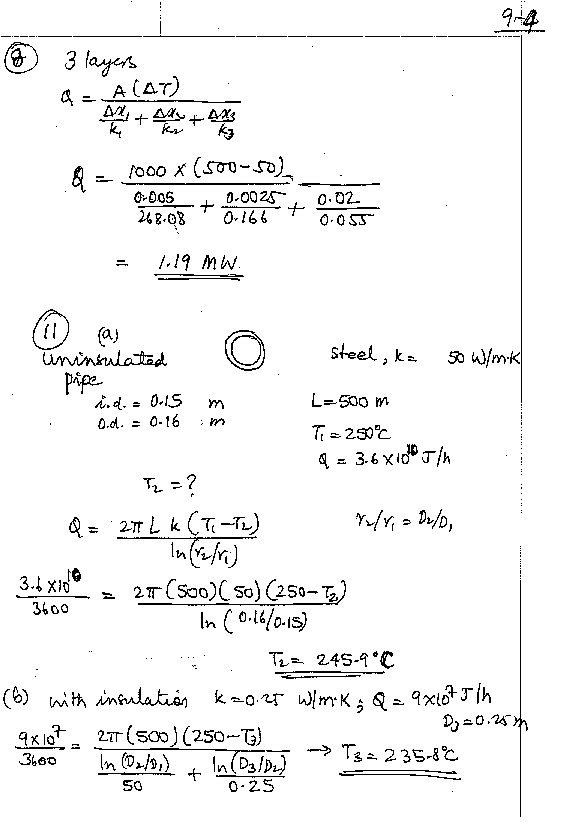 9-4
⑧ 3 layers
Q = A(ΔT) / (Δx₁/k₁ + Δx₂/k₂ + Δx₃/k₃)
Q = 1000 × (500-50) / (0.005/268.08 + 0.0025/0.166 + 0.02/0.055)
= 1.19 MW
⑪ (a)
uninsulated pipe
Steel, k = 50 W/m·K
i.d. = 0.15 m
L = 500 m
o.d. = 0.16 m
T₁ = 250°C
Q = 3.6 × 10¹⁰ J/h
T₂ = ?
Q = 2π L k (T₁-T₂) / ln(r₂/r₁)
r₂/r₁ = D₂/D₁
3.6 × 10¹⁰ / 3600 = 2π(500)(50)(250-T₂) / ln(0.16/0.15)
T₂ = 245.9°C
(b) with insulation k = 0.25 W/m·K; Q = 9×10⁷ J/h
D₃ = 0.25 m
9×10⁷ / 3600 = 2π(500)(250-T₃) / (ln(D₂/D₁)/50 + ln(D₃/D₂)/0.25) → T₃ = 235.8°C